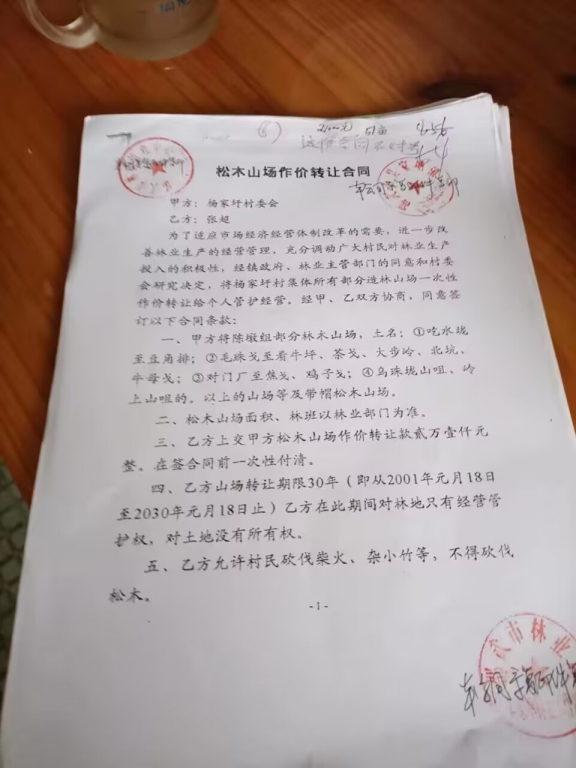 松木山场作价转让合同
甲方：杨家圩村委会
乙方：张超
为了适应市场经济经营体制改革的需要，进一步改
善林业生产的经营管理，充分调动广大村民对林业生产
投入的积极性，经镇政府、林业主管部门的同意和村委
会研究决定，将杨家圩村集体所有部分造林山场一次性
作价转让给个人管护经营。经甲、乙双方协商，同意签
订以下合同条款：
一、甲方将陈墩组部分林木山场，土名：①吃水垅
至豆角排；②毛珠戈至看牛坪、茶戈、大步岭、北坑、
牛母戈；③对门厂至焦戈、鸡子戈；④乌珠垅山咀、岭
上山咀的。以上的山场等及带帽松木山场。
二、松木山场面积、林班以林业部门为准。
三、乙方上交甲方松木山场作价转让款贰万壹仟元
整。在签合同前一次性付清。
四、乙方山场转让期限30年（即从2001年元月18日
至2030年元月18日止）乙方在此期间对林地只有经营管
护权，对土地没有所有权。
五、乙方允许村民砍伐柴火、杂小竹等，不得砍伐
松木。
-1-
武市林业